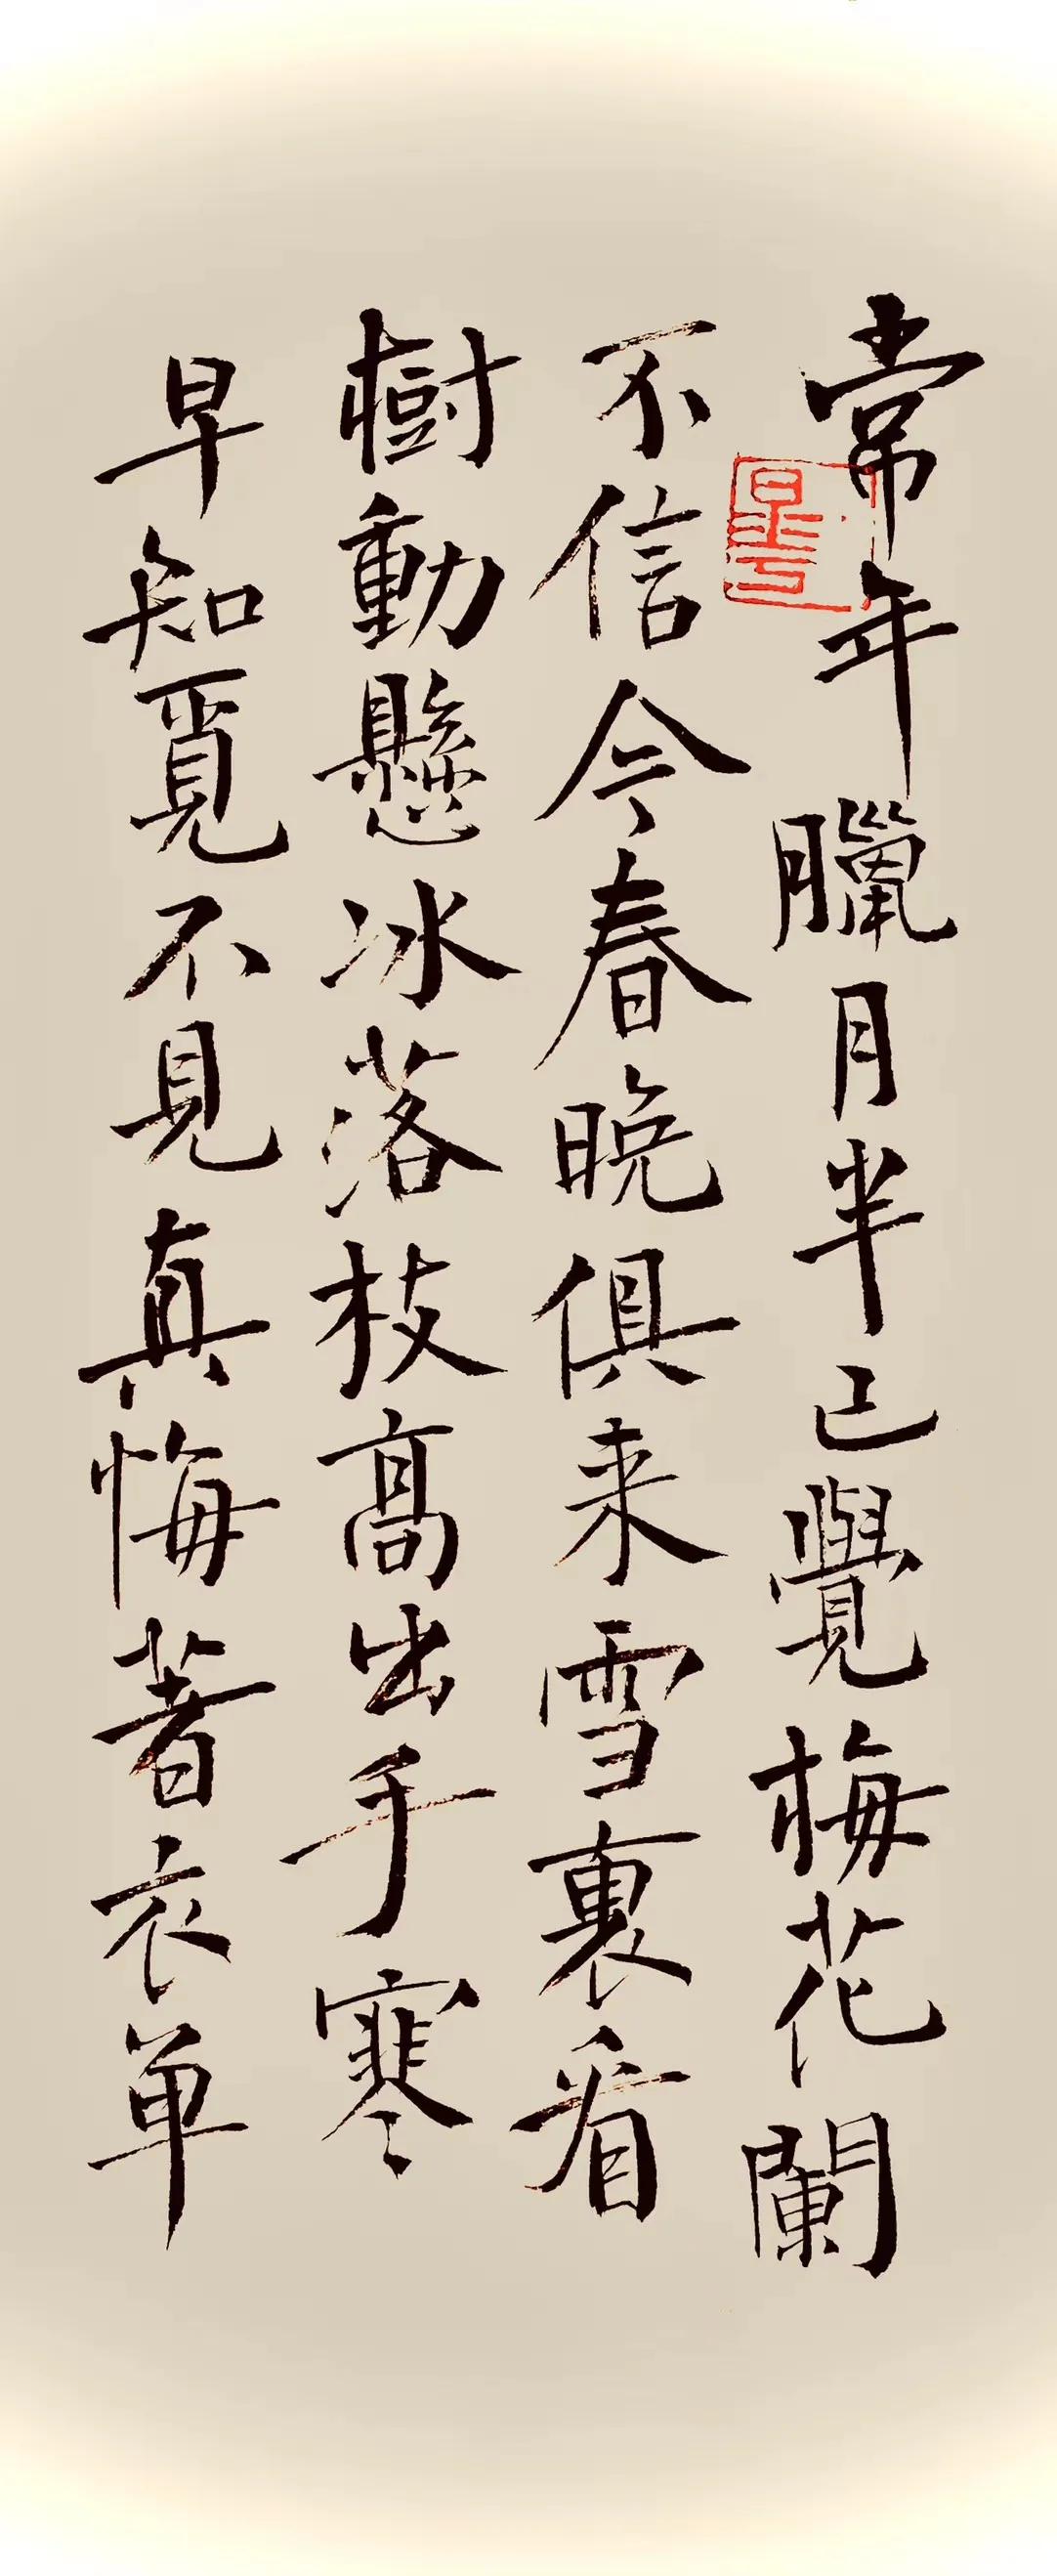 常年臘月半已覺梅花闌
不信今春晚俱来雪裏看
樹動懸冰落枝高出手寒
早知覓不見真悔著衣单